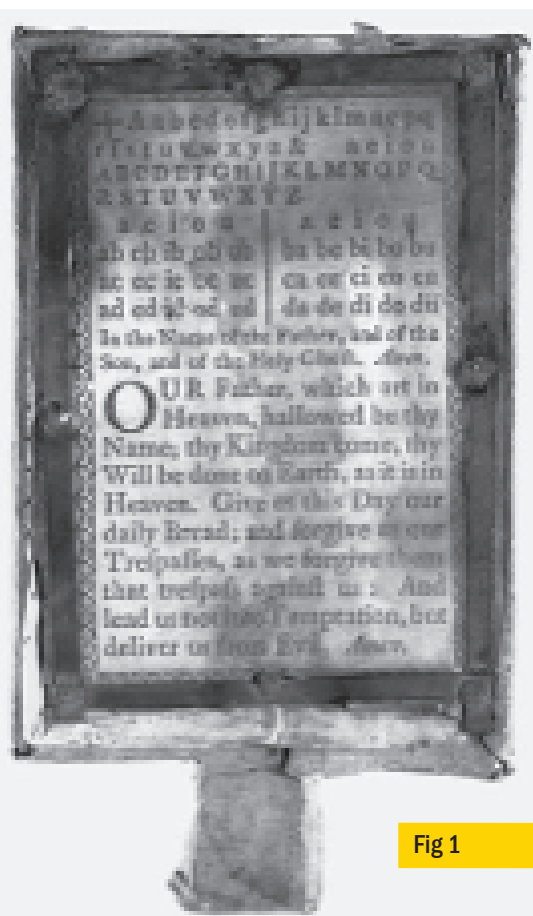 + A a b c d e f g h i j k l m n o p q
r ſ s t u v w x y z & a e i o u
A B C D E F G H I J K L M N O P Q
R S T U V W X Y Z
a e i o u a e i o u
ab eb ib ob ub ba be bi bo bu
ac ec ic oc uc ca ce ci co cu
ad ed id od ud da de di do du
In the Name of the Father, and of the
Son, and of the Holy Ghoſt. Amen.
OUR Father, which art in
Heaven, hallowed be thy
Name, thy Kingdom come, thy
Will be done on Earth, as it is in
Heaven. Give us this Day our
daily Bread; and forgive us our
Treſpaſſes, as we forgive them
that treſpaſs againſt us : And
lead us not into Temptation, but
deliver us from Evil. Amen.
Fig 1